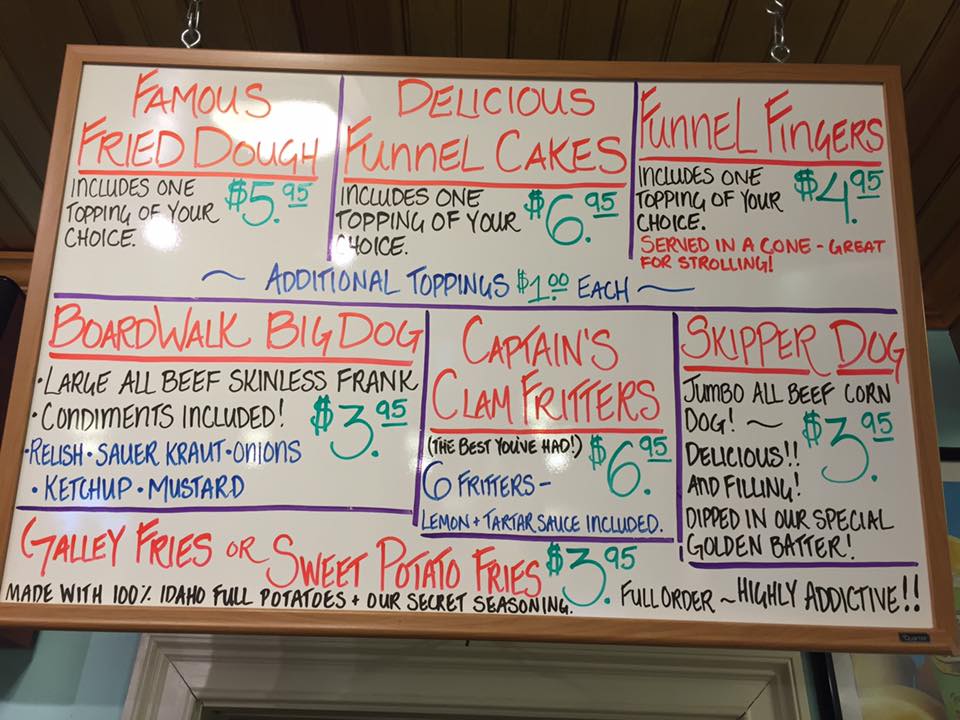 FAMOUS
FRIED DOUGH
INCLUDES ONE
TOPPING OF YOUR
CHOICE.
$5.95
DELICIOUS
FUNNEL CAKES
INCLUDES ONE
TOPPING OF YOUR
CHOICE.
$6.95
FUNNEL FINGERS
INCLUDES ONE
TOPPING OF YOUR
CHOICE.
$4.95
SERVED IN A CONE - GREAT
FOR STROLLING!
~ ADDITIONAL TOPPINGS $1.00 EACH ~
BOARDWALK BIG DOG
· LARGE ALL BEEF SKINLESS FRANK
· CONDIMENTS INCLUDED!
$3.95
· RELISH · SAUER KRAUT · ONIONS
· KETCHUP · MUSTARD
CAPTAIN'S
CLAM FRITTERS
(THE BEST YOU'VE HAD!)
$6.95
6 FRITTERS -
LEMON + TARTAR SAUCE INCLUDED.
SKIPPER DOG
JUMBO ALL BEEF CORN
DOG! ~
$3.95
DELICIOUS!!
AND FILLING!
DIPPED IN OUR SPECIAL
GOLDEN BATTER!
GALLEY FRIES OR SWEET POTATO FRIES $3.95
MADE WITH 100% IDAHO FULL POTATOES + OUR SECRET SEASONING.
FULL ORDER ~ HIGHLY ADDICTIVE!!
Quartet